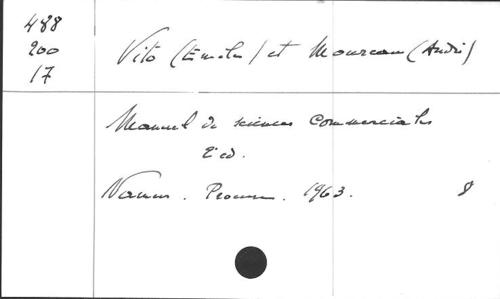 488
200
17
Vito (Emile) et Moureau (André)
Manuel de sciences commerciales
2e éd.
Namur. 1963. 8